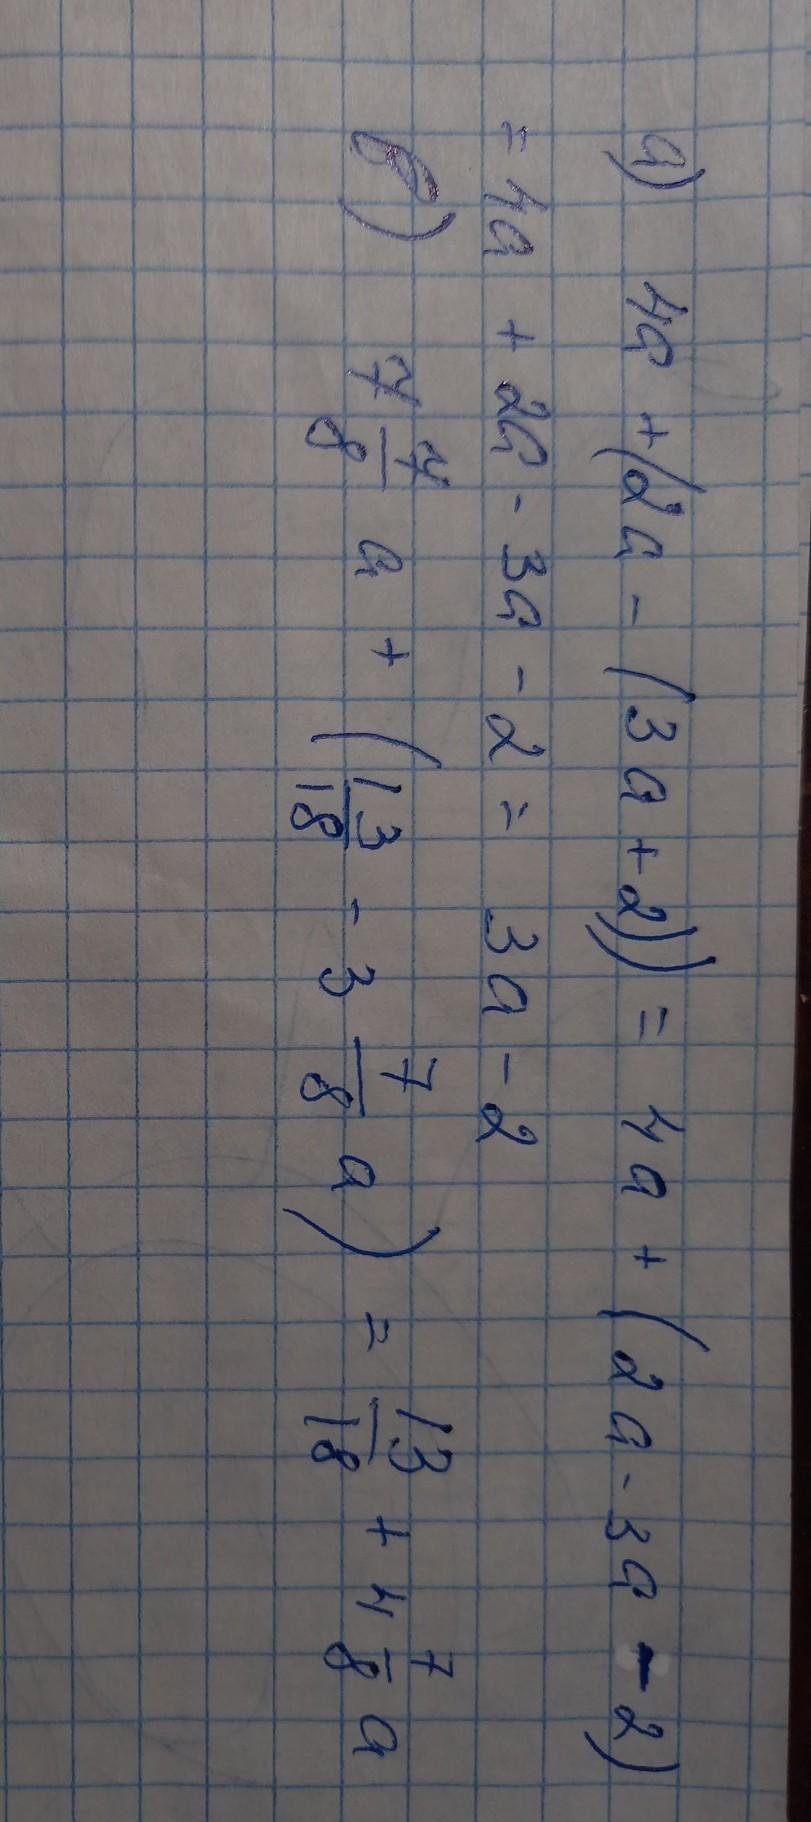 а) 4a + (2a - (3a + 2)) = 4a + (2a - 3a - 2)
= 4a + 2a - 3a - 2 = 3a - 2
б) 7 7/8 a + (13/18 - 3 7/8 a) = 13/18 + 4 7/8 a